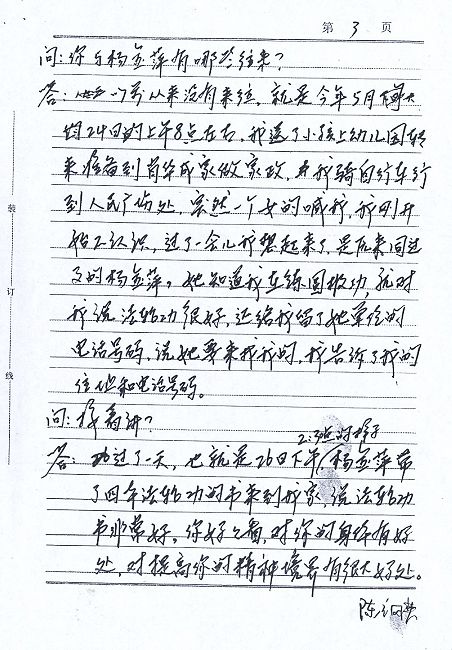 第 3 页
问:你与杨金萍有哪些往来?
答:以前从来没有来往,就是今年5月
24日的上午8点左右,我送了小孩上幼儿园转
来准备到肖华成家做家政,我骑自行车行
到人民广场处,突然一个女的喊我,我刚开
始不认识,过了一会儿我想起来了,是原来同过
的杨金萍。她知道我在练图功,就对
我说法轮功很好,还给我留了她单位的
电话号码,说她要来找我的,我告诉了我的
住址和电话号码。
问:接着讲?
2:3点的样子
答:过了一天,也就是26日下午,杨金萍带
了四本法轮功的书来到我家,说法轮功
书非常好,你好好看,对你的身体有好
处,对提高你的精神境界有很大好处。
装
订
线